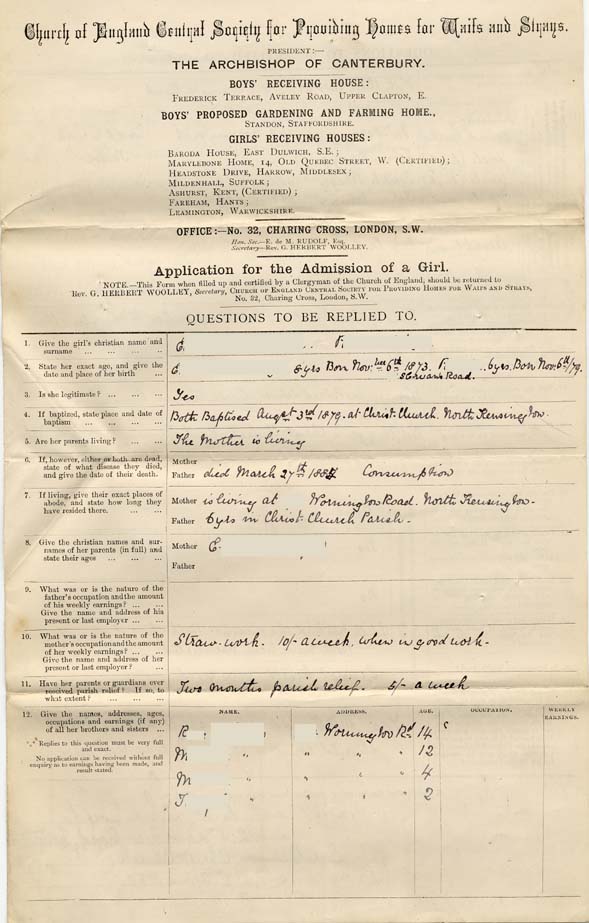 Church of England Central Society for Providing Homes for Waifs and Strays.
PRESIDENT:—
THE ARCHBISHOP OF CANTERBURY.
BOYS' RECEIVING HOUSE:
FREDERICK TERRACE, AVELEY ROAD, UPPER CLAPTON, E.
BOYS' PROPOSED GARDENING AND FARMING HOME.,
STANDON, STAFFORDSHIRE.
GIRLS' RECEIVING HOUSES:
BARODA HOUSE, EAST DULWICH, S.E.;
MARYLEBONE HOME, 14, OLD QUEBEC STREET, W. (CERTIFIED);
HEADSTONE DRIVE, HARROW, MIDDLESEX;
MILDENHALL, SUFFOLK;
ASHURST, KENT, (CERTIFIED);
FAREHAM, HANTS;
LEAMINGTON, WARWICKSHIRE.
OFFICE:—No. 32, CHARING CROSS, LONDON, S.W.
Hon. Sec.—E. de M. RUDOLF, Esq.
Secretary—Rev. G. HERBERT WOOLLEY.
Application for the Admission of a Girl.
NOTE.—This Form when filled up and certified by a Clergyman of the Church of England, should be returned to
Rev. G. HERBERT WOOLLEY, Secretary, CHURCH OF ENGLAND CENTRAL SOCIETY FOR PROVIDING HOMES FOR WAIFS AND STRAYS,
No. 32, Charing Cross, London, S.W.
QUESTIONS TO BE REPLIED TO.
1. Give the girl's christian name and
surname ... ... ... ...
E. F.
2. State her exact age, and give the
date and place of her birth ...
E. 8 yrs Born Nov. 6th 1873. F. 6 yrs. Born Nov 6th/79.
Road.
3. Is she legitimate? ... ... ...
Yes
4. If baptized, state place and date of
baptism ... ... ... ...
Both Baptised Augst 3rd 1879. at Christ Church. North Kensington.
5. Are her parents living? ... ...
The Mother is living
6. If, however, either or both are dead,
state of what disease they died,
and give the date of their death.
Mother
Father died March 27th 1884 Consumption
7. If living, give their exact places of
abode, and state how long they
have resided there. ... ...
Mother is living at Wornington Road. North Kensington.
Father 6 yrs in Christ Church Parish.
8. Give the christian names and sur-
names of her parents (in full) and
state their ages ... ... ...
Mother E.
Father
9. What was or is the nature of the
father's occupation and the amount
of his weekly earnings? ... ...
Give the name and address of his
present or last employer ... ...
10. What was or is the nature of the
mother's occupation and the amount
of her weekly earnings? ... ...
Give the name and address of her
present or last employer? ...
Straw-work. 10/- a week, when in good work.
11. Have her parents or guardians ever
received parish relief? If so, to
what extent? ... ... ...
Two months parish relief. 5/- a week
12. Give the names, addresses, ages,
occupations and earnings (if any)
of all her brothers and sisters ...
Replies to this question must be very full
and exact.
No application can be received without full
enquiry as to earnings having been made, and
result stated.
NAME. ADDRESS. AGE. OCCUPATION. WEEKLY
EARNINGS.
R Wornington Rd 14
M " " " 12
M " " " 4
T. " " " 2